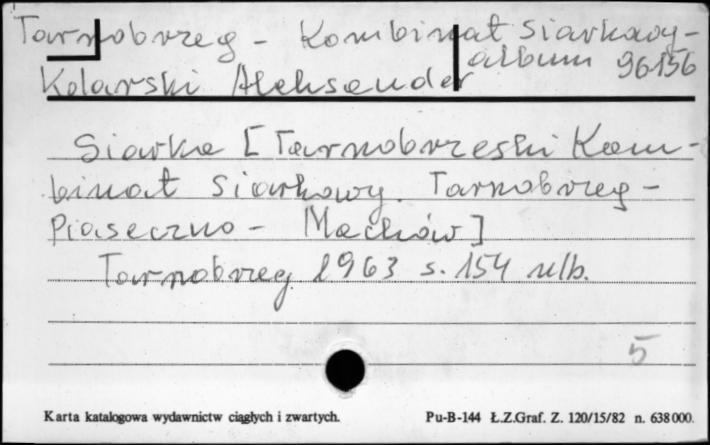 Tarnobrzeg - Kombinat Siarkowy -
album 96156
Kolarski Aleksander
Siarka [Tarnobrzeski Kom-
binat Siarkowy. Tarnobrzeg -
Piaseczno - Machów]
Tarnobrzeg 1963 s. 154 nlb.
5
Karta katalogowa wydawnictw ciągłych i zwartych.
Pu-B-144 Ł.Z.Graf. Z. 120/15/82 n. 638000.